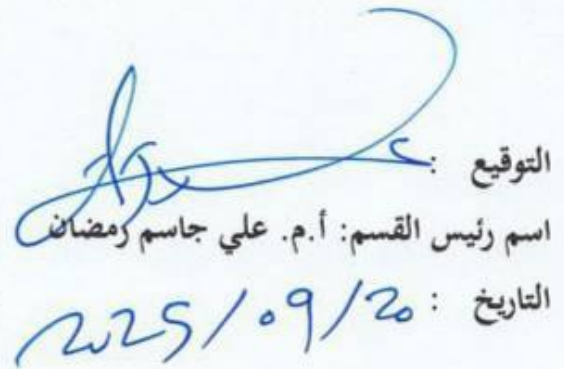 التوقيع :
اسم رئيس القسم: أ.م. علي جاسم رمضان
التاريخ : 2025/09/20